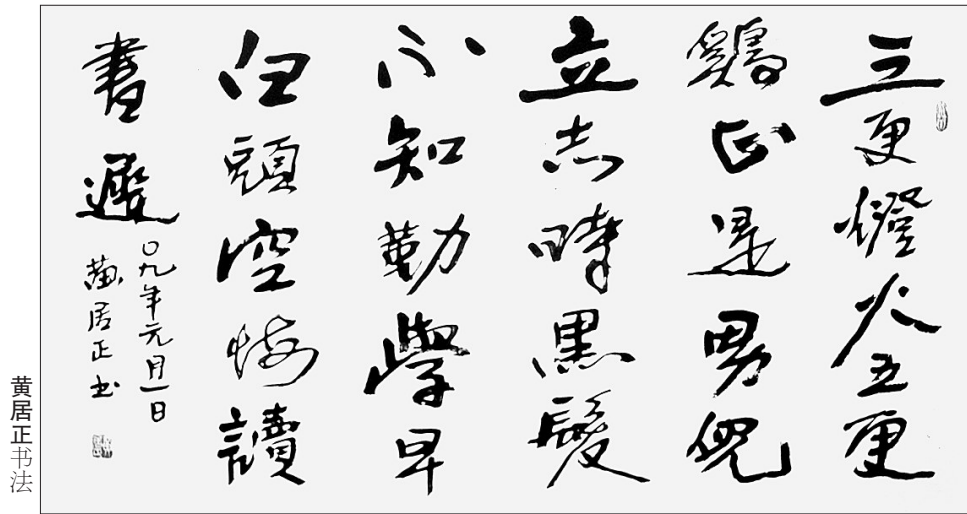 三更燈火五更
鷄正是男兒
立志時黑髮
不知勤學早
白頭空悔讀
書遲
〇九年元月一日
黄居正书
黄居正书法